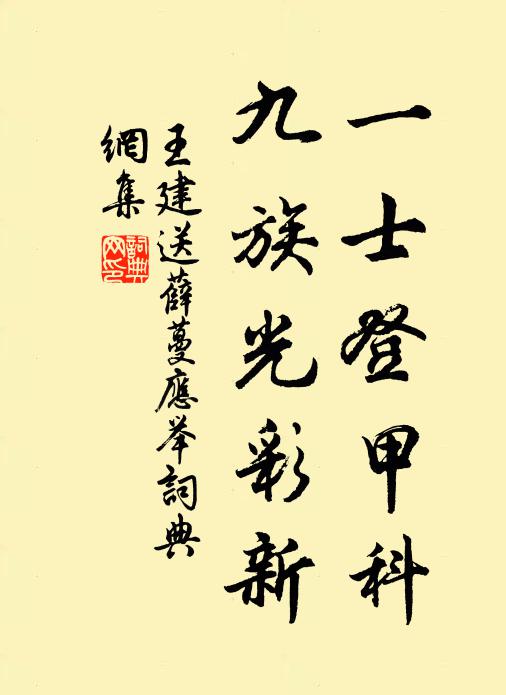 一士登甲科
九族光彩新
王建送薛蔓應举詞典
網集
詞典
网印